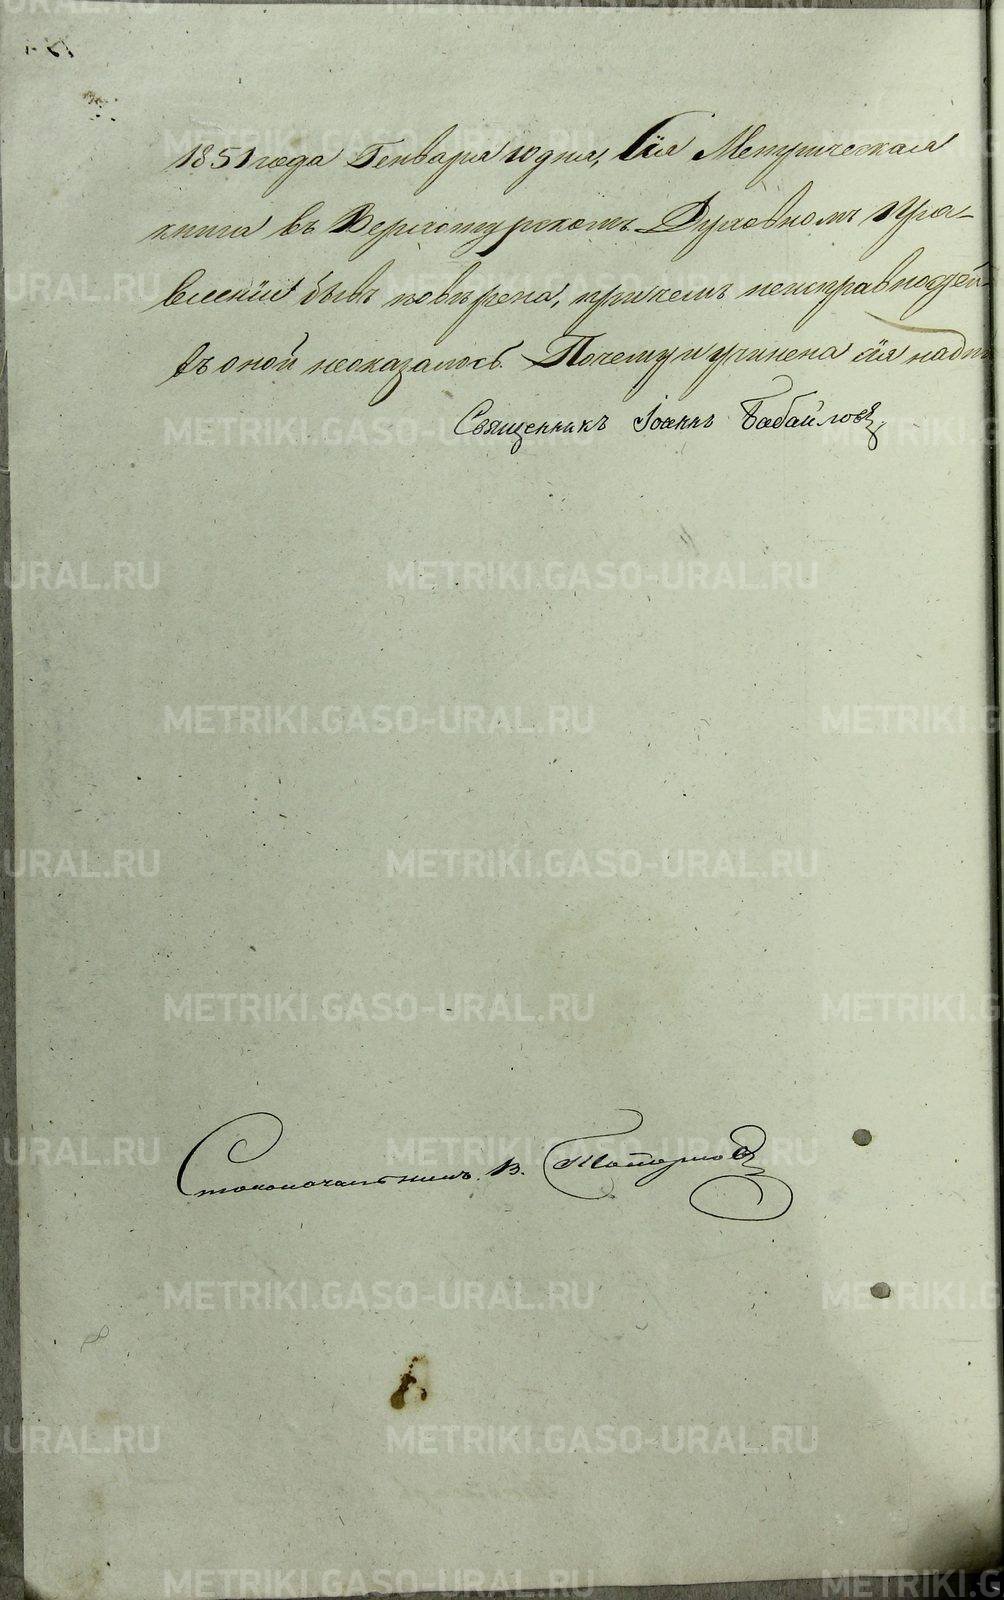 1851 года Генваря 10 дня, Сія Метрическая
книга въ Верхотурскомъ Духовномъ Пра-
вленіи бывъ повѣрена, причемъ неисправностей
въ оной неоказалось. Почему и учинена сія надпи
Священникъ Іоаннъ Бабайловъ
Столоначальникъ В.